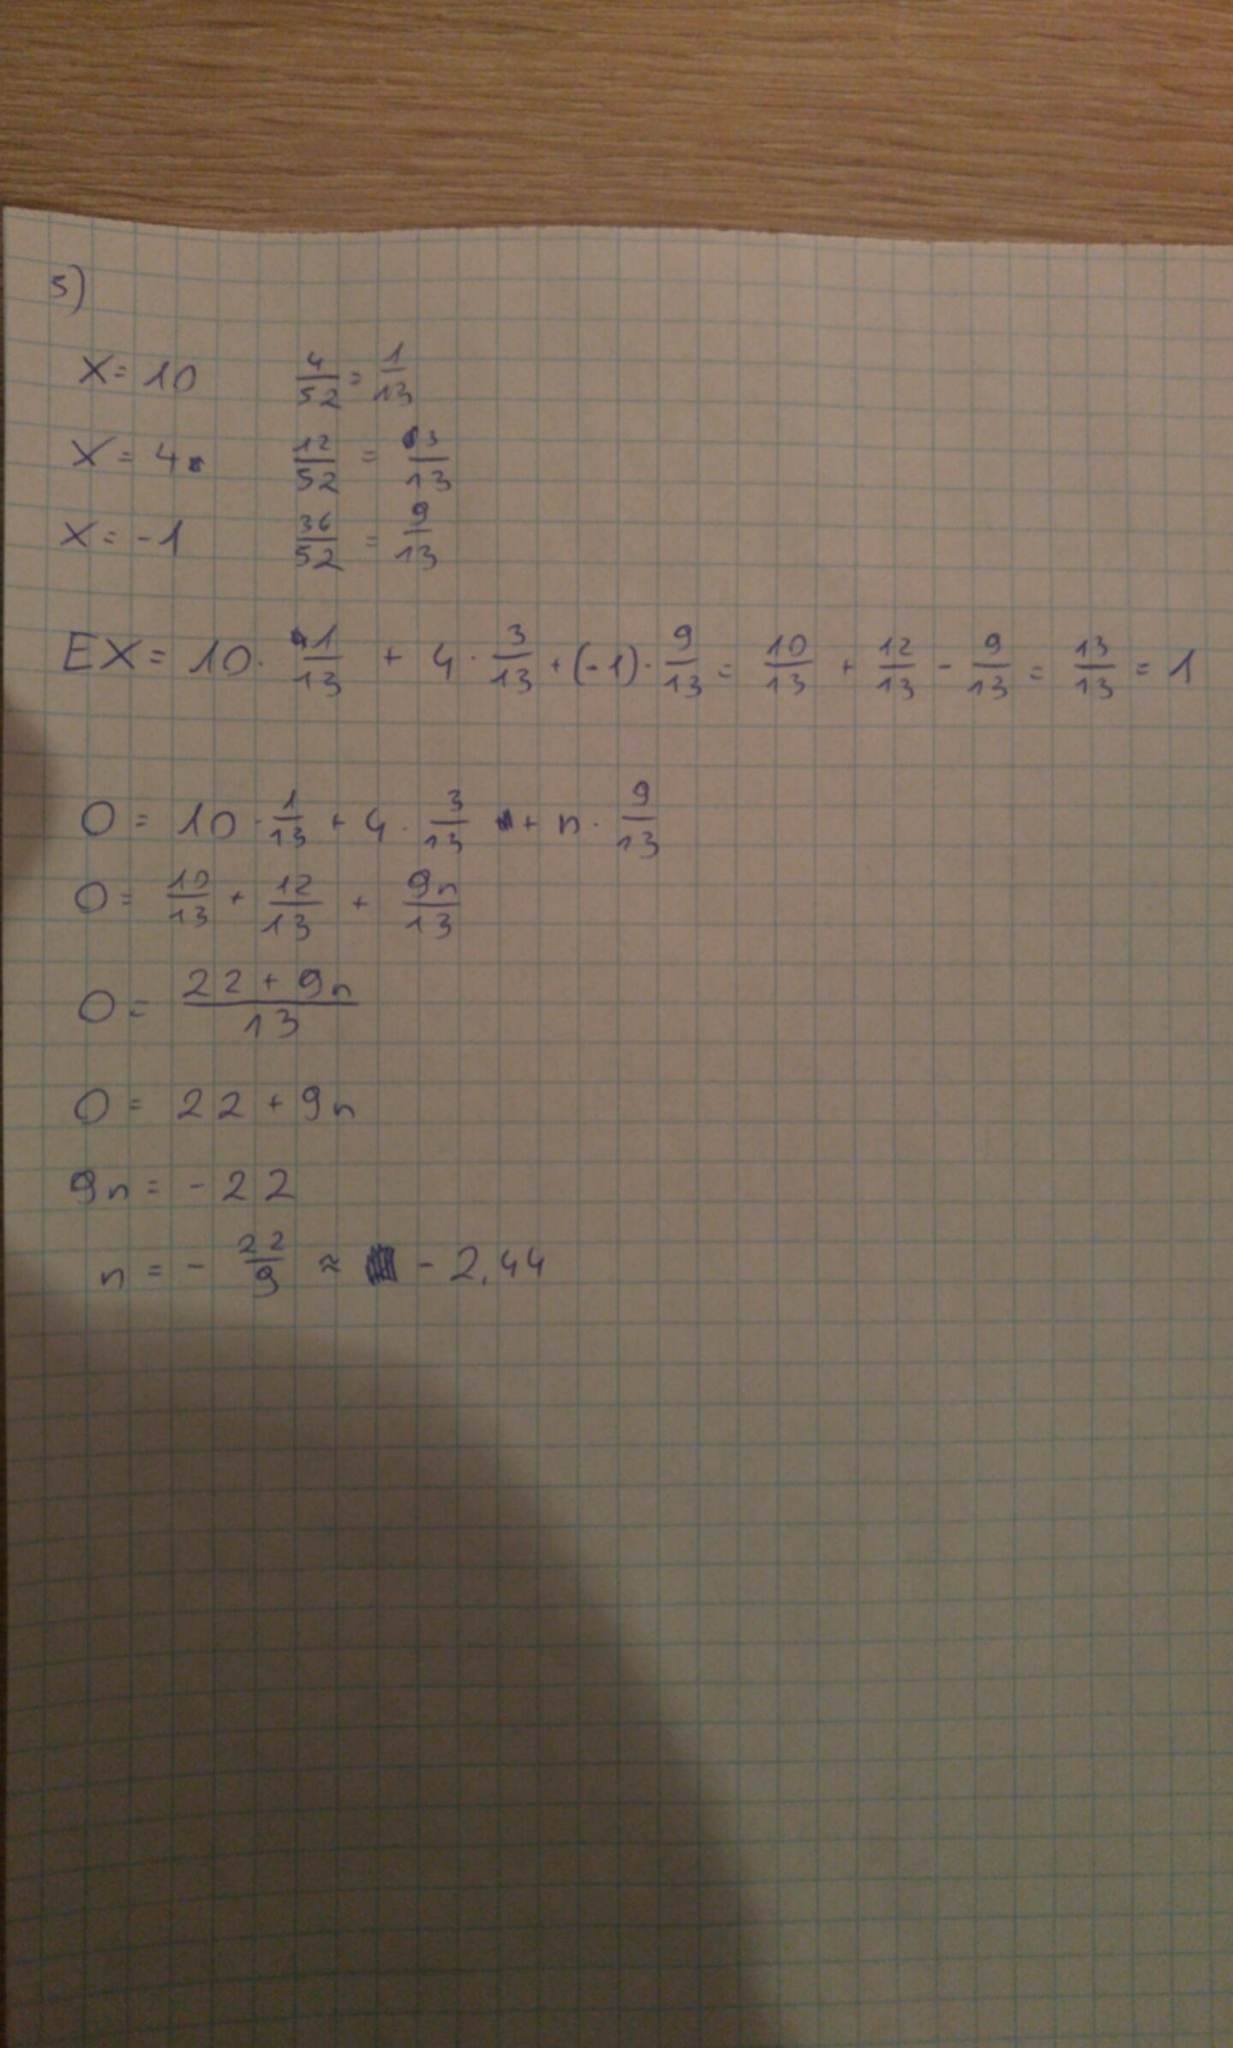 5)
X = 10 4/52 = 1/13
X = 4 12/52 = 3/13
X = -1 36/52 = 9/13
EX = 10 · 1/13 + 4 · 3/13 + (-1) · 9/13 = 10/13 + 12/13 - 9/13 = 13/13 = 1
0 = 10 · 1/13 + 4 · 3/13 + n · 9/13
0 = 10/13 + 12/13 + 9n/13
0 = 22 + 9n/13
0 = 22 + 9n
9n = - 22
n = - 22/9 ≈ - 2,44